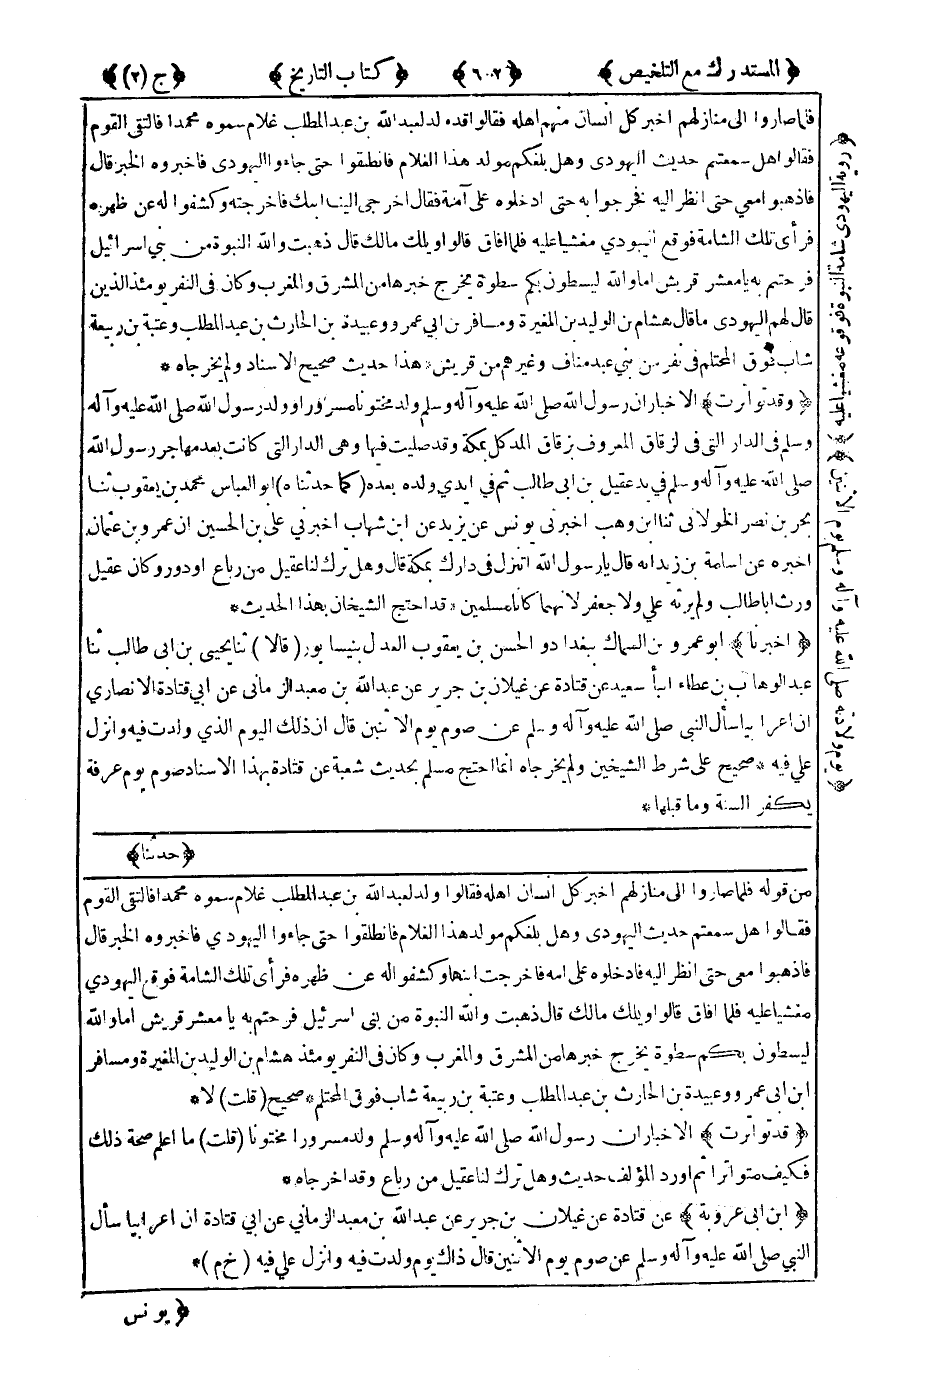 ﴿ المستدرك مع التلخيص ﴾ ﴿ ٦٠٢ ﴾ ﴿ كتاب التاريخ ﴾ ﴿ ج (٢) ﴾
فلما صاروا الى منازلهم اخبر كل انسان منهم اهله فقالوا قد ولد لعبد الله بن عبد المطلب غلام سموه محمدا فالتقى القوم
فقالوا هل سمعتم حديث اليهودى وهل بلغكم مولد هذا الغلام فانطلقوا حتى جاءوا اليهودى فاخبروه الخبر قال
فاذهبوا معي حتى انظر اليه فخرجوا به حتى ادخلوه على آمنة فقال اخرجى الينا ابنك فاخرجته وكشفوا له عن ظهره
فرأى تلك الشامة فوقع اليهودي مغشيا عليه فلما افاق قالوا ويلك مالك قال ذهبت والله النبوة من بني اسرائيل
فرحتم به يا معشر قريش اما والله ليسطون بكم سطوة يخرج خبرها من المشرق والمغرب وكان فى النفر يومئذ الذين
قال لهم اليهودى ما قال هشام بن الوليد بن المغيرة ومسافر بن ابي عمرو وعبيدة بن الحارث بن عبد المطلب وعتبة بن ربيعة
شاب فوق المحتلم فى نفر من بني عبد مناف وغيرهم من قريش * هذا حديث صحيح الاسناد ولم يخرجاه *
﴿ وقد تواترت ﴾ الاخبار ان رسول الله صلى الله عليه وآله وسلم ولد مختونا مسرورا وولد رسول الله صلى الله عليه وآله
وسلم فى الدار التى فى الزقاق المعروف بزقاق المدكل بمكة وقد صليت فيها وهى الدار التى كانت بعد مهاجر رسول الله
صلى الله عليه وآله وسلم فى يد عقيل بن ابى طالب ثم في ايدي ولده بعده ( كما حدثناه ) ابو العباس محمد بن يعقوب ثنا
بحر بن نصر الخولانى ثنا ابن وهب اخبرنى يونس عن يزيد عن ابن شهاب اخبرني علي بن الحسين ان عمرو بن عثمان
اخبره عن اسامة بن زيد انه قال يا رسول الله اتنزل فى دارك بمكة قال وهل ترك لنا عقيل من رباع او دور وكان عقيل
ورث ابا طالب ولم يرثه علي ولا جعفر لانهما كانا مسلمين * قد احتج الشيخان بهذا الحديث *
﴿ اخبرنا ﴾ ابو عمرو بن السماك ببغداد والحسن بن يعقوب العدل بنيسابور ( قالا ) ثنا يحيى بن ابى طالب ثنا
عبد الوهاب بن عطاء انبأ سعيد عن قتادة عن غيلان بن جرير عن عبد الله بن معبد الزمانى عن ابي قتادة الانصاري
ان اعرابيا سأل النبي صلى الله عليه وآله وسلم عن صوم يوم الاثنين قال ان ذلك اليوم الذي ولدت فيه وانزل
علي فيه * صحيح على شرط الشيخين ولم يخرجاه انما احتج مسلم بحديث شعبة عن قتادة بهذا الاسناد صوم يوم عرفة
يكفر السنة وما قبلها *
﴿ حدثنا ﴾
من قوله فلما صاروا الى منازلهم اخبر كل انسان اهله فقالوا ولد لعبد الله بن عبد المطلب غلام سموه محمدا فالتقى القوم
فقالوا هل سمعتم حديث اليهودى وهل بلغكم مولد هذا الغلام فانطلقوا حتى جاءوا اليهودي فاخبروه الخبر قال
فاذهبوا معى حتى انظر اليه فادخلوه على امه فاخرجت ابنها وكشفوا له عن ظهره فرأى تلك الشامة فوقع اليهودي
مغشيا عليه فلما افاق قالوا ويلك مالك قال ذهبت والله النبوة من بنى اسرائيل فرحتم به يا معشر قريش اما والله
ليسطون بكم سطوة يخرج خبرها من المشرق والمغرب وكان فى النفر يومئذ هشام بن الوليد بن المغيرة ومسافر
ابن ابى عمرو وعبيدة بن الحارث بن عبد المطلب وعتبة بن ربيعة شاب فوق المحتلم * صحيح ( قلت ) لا *
﴿ قد تواترت ﴾ الاخبار ان رسول الله صلى الله عليه وآله وسلم ولد مسرورا مختونا ( قلت ) ما اعلم صحة ذلك
فكيف متواترا ثم اورد المؤلف حديث وهل ترك لنا عقيل من رباع وقد اخرجاه *
﴿ ابن ابى عروبة ﴾ عن قتادة عن غيلان بن جرير عن عبد الله بن معبد الزماني عن ابي قتادة ان اعرابيا سأل
النبي صلى الله عليه وآله وسلم عن صوم يوم الاثنين قال ذاك يوم ولدت فيه وانزل علي فيه ( خ م ) *
﴿ يونس
﴿ روية اليهودى شامة النبوة فوقوعه مغشيا عليه ﴾
﴿ يوم ولادته صلى الله عليه وآله وسلم يوم الاثنين ﴾